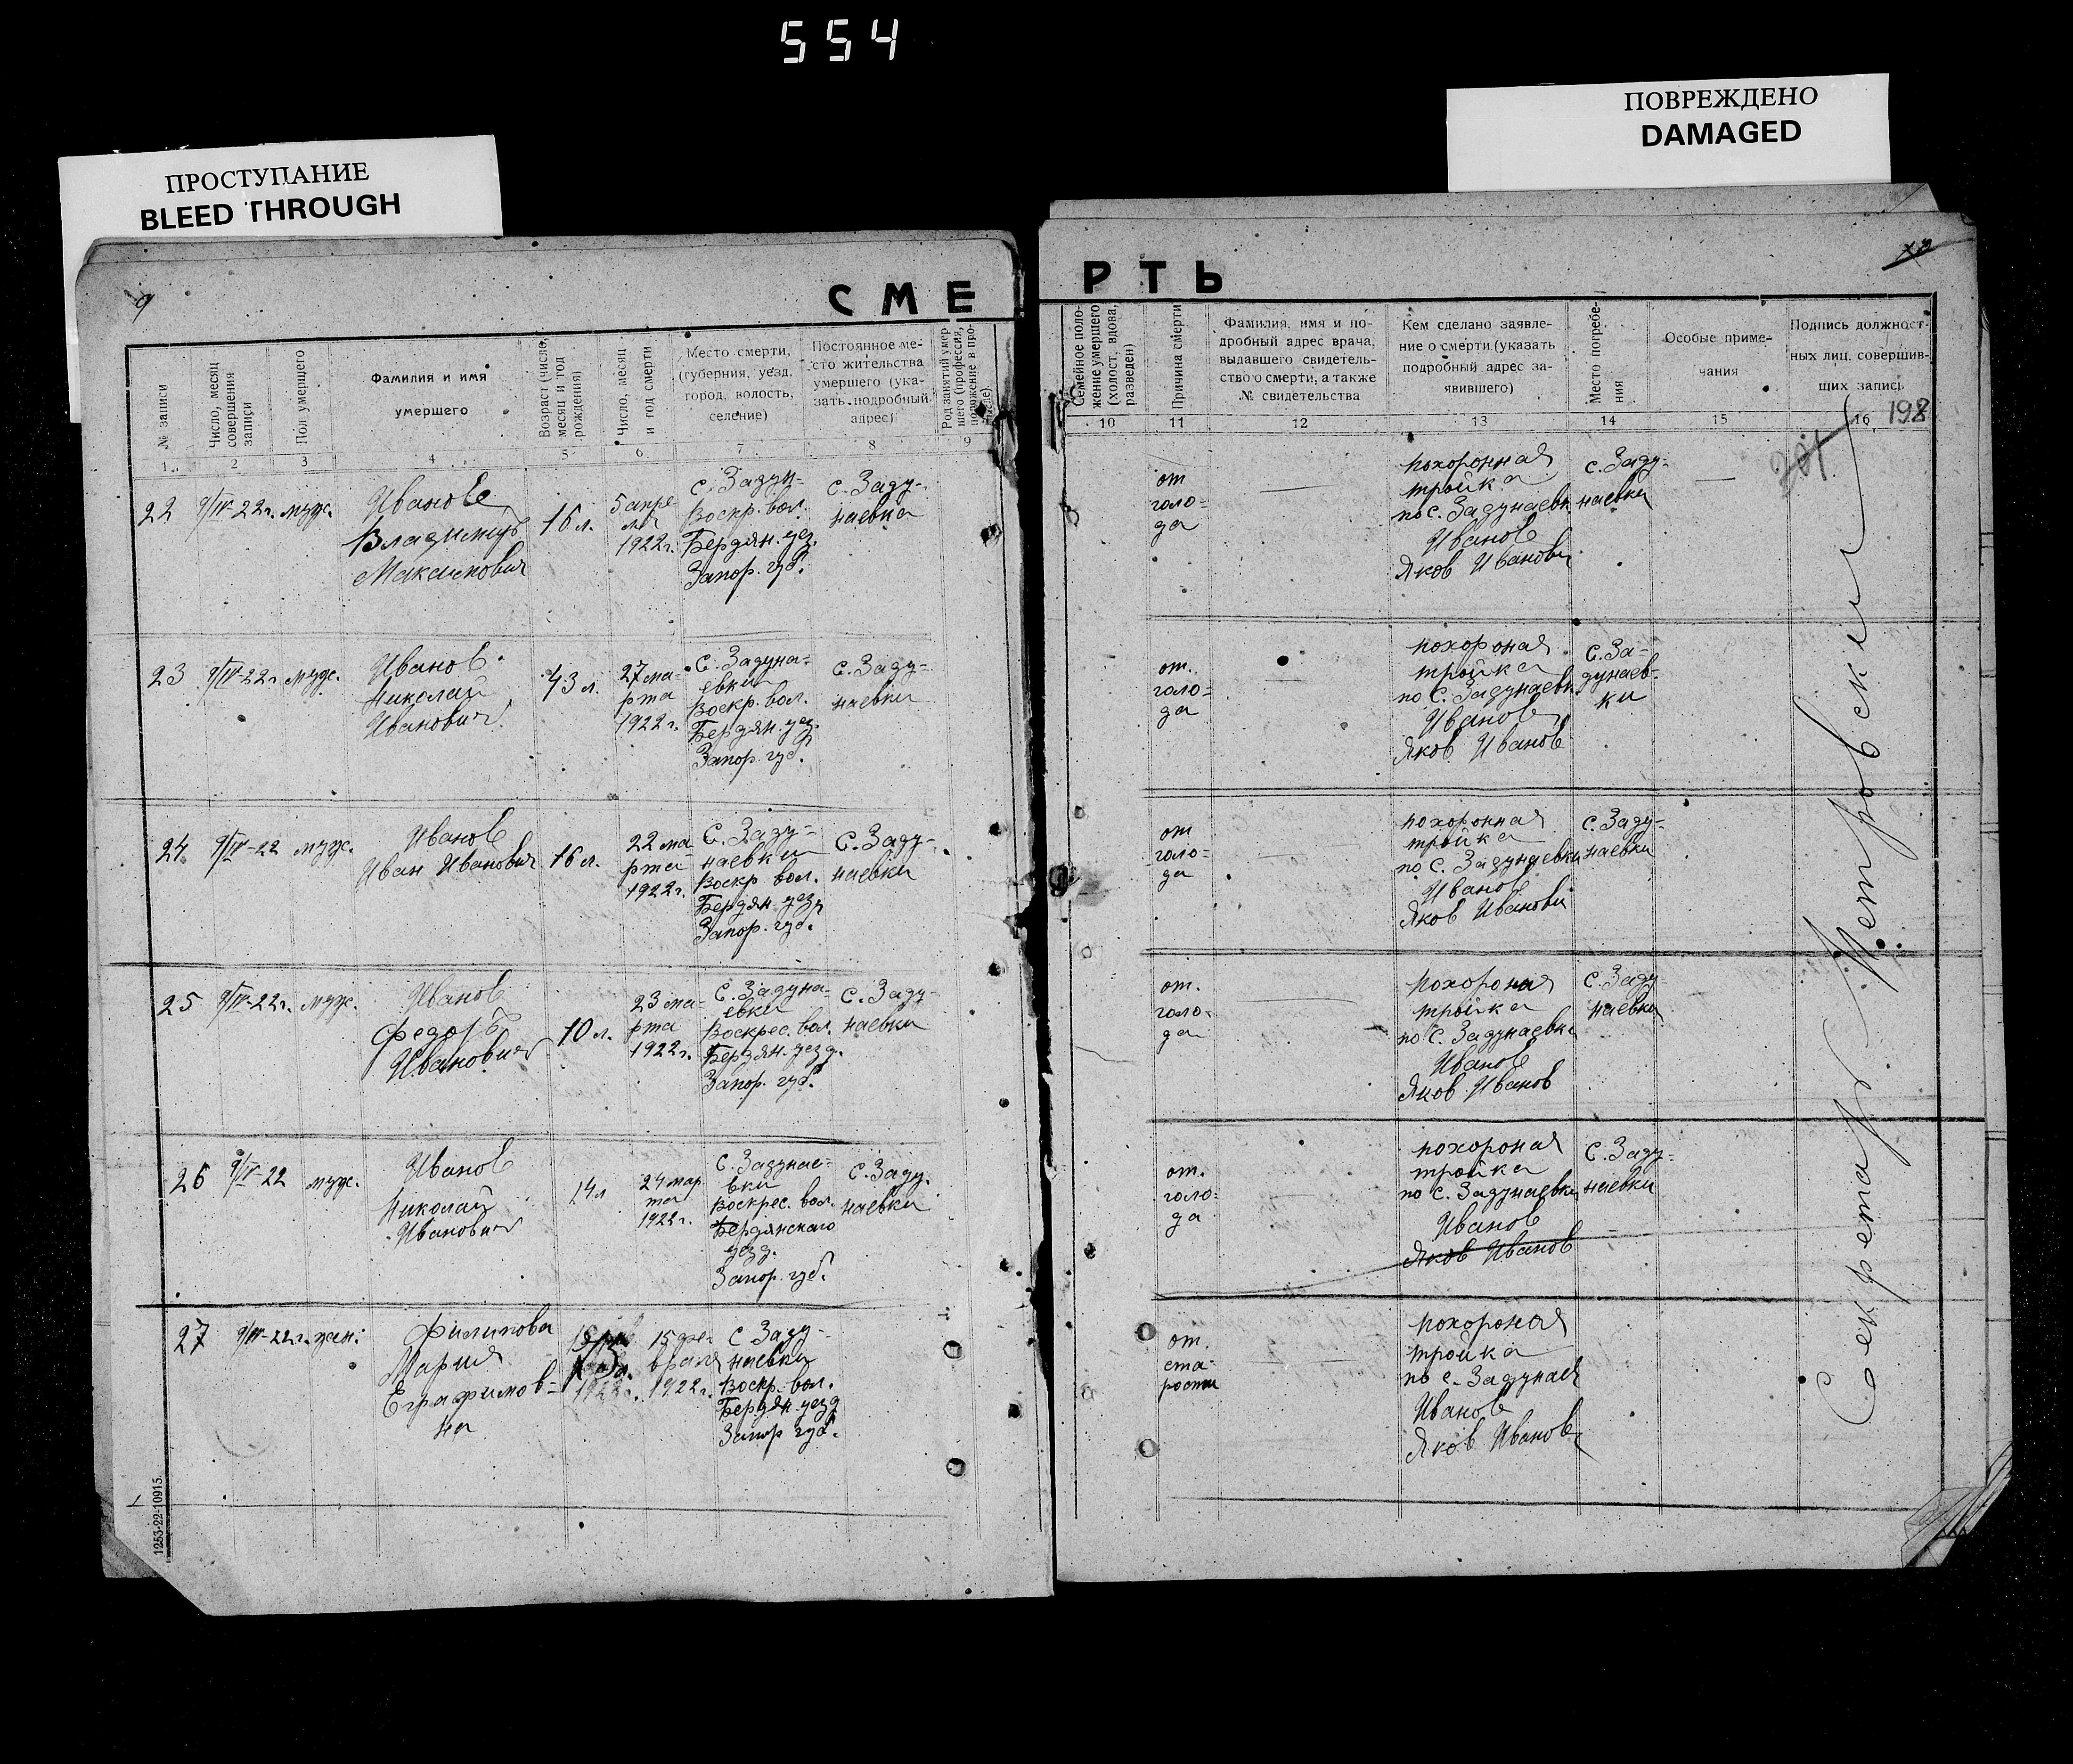 554
ПРОСТУПАНИЕ
BLEED THROUGH
ПОВРЕЖДЕНО
DAMAGED
9
СМЕ
№ записи
Число, месяц
совершения
записи
Пол умершего
Фамилия и имя
умершего
Возраст (число,
месяц и год
рождения)
Число, месяц
и год смерти
Место смерти,
(губерния, уезд,
город, волость,
селение)
Постоянное ме-
сто жительства
умершего (ука-
зать подробный
адрес)
Род занятий умер
шего (профессия,
положение в про-
1
2
3
4
5
6
7
8
9
22
9/IV-22г.
муж.
Иванов
Владимир
Максимович
16 л.
5 апре-
ля
1922г.
с. Задун-
Воскр. вол.
Бердян. уез.
Запор. губ.
с. Заду-
наевка
23
9/IV-22г.
муж.
Иванов
Николай
Иванович
43 л.
27 ма-
рта
1922г.
с. Задуна-
евки
Воскр. вол.
Бердян. уез.
Запор. губ.
с. Заду-
наевки
24
9/IV-22
муж.
Иванов
Иван Иванович
16 л.
22 ма
рта
1922г.
С. Заду-
наевки
Воскр вол.
Бердян. уезд
Запор. губ.
С. Заду-
наевки
25
9/IV-22г.
муж.
Иванов
Федор
Иванович
10 л.
23 ма-
рта
1922г.
С. Задуна-
евки
Воскрес. вол.
Бердян. уезд.
Запор. губ.
С. Заду-
наевки
26
9/IV-22
муж.
Иванов
Николай
Иванович
14 л
24 мар
та
1922г.
с. Задунае-
вки
Воскрес. вол.
Бердянского
уезд.
Запор. губ.
С. Заду.
наевки
27
9/IV-22г.
жен.
Филипова
Мария
Ефимов-
на
1922г.
15 фе-
враля
1922г.
с Заду-
наевки
Воскр. вол.
Бердян. уезд
Запор губ.
1253-22-10915.
РТЬ
Семейное поло-
жение умершего
(холост, вдова,
разведен)
Причина смерти
Фамилия, имя и по-
дробный адрес врача,
выдавшего свидетель-
ство о смерти, а также
№ свидетельства
Кем сделано заявле-
ние о смерти (указать
подробный адрес за-
явившего)
Место погребе-
ния
Особые приме-
чания
Подпись должност-
ных лиц, совершив-
ших запись
10
11
12
13
14
15
16
198
201
от
голо-
да
похоронная
тройка
по с. Задунаевк
Иванов
Яков Иванови
с. Заду-
наевки
от.
голо-
да
похороная
тройка
по С. Задунаевк
Иванов
Яков Иванов
С. За-
дунаев-
ки
от
голо-
да
похоронная
тройка
по С. Задунаевки
Иванов
Яков Иванови
С. Заду-
наевки
от.
голо-
да
похороная
тройка
по С. Задунаевки
Иванов
Яков Иванов
С. Заду-
наевки
от.
голо-
да
похороная
тройка
по С. Задунаевки
Иванов
Яков Иванов
С. Заду-
наевки
от.
ста-
рости
похороная
тройка
по с. Задунаев
Иванов
Яков Иванов
Секретарь Петровский